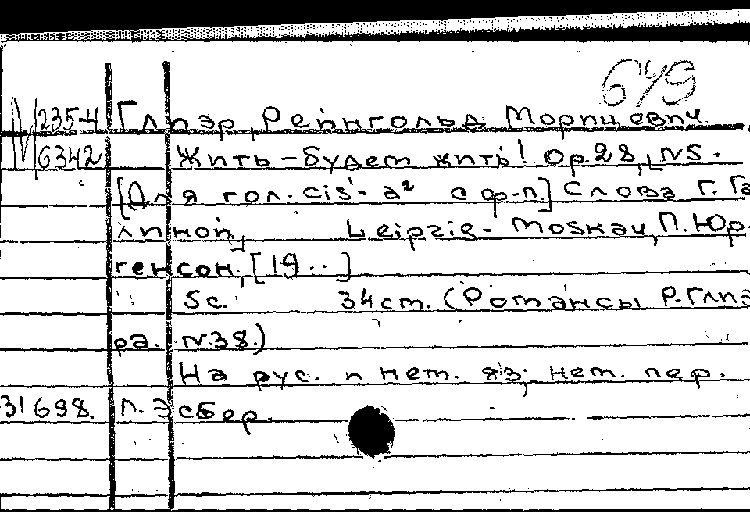 649
М 2354 Глиэр, Рейнгольд Морицевич.
6342 Жить – будем жить! Op. 28, N5.
[Для гол. cis'- a² с ф-п.] Слова Г. Га
линой,
Leipzig - Moskau, П. Юр-
генсон, [19..]
5с. 34 см. (Романсы Р. Глиэ
ра. N.38.)
На рус. и нем. яз; нем. пер.
31698. п. Эсбер.